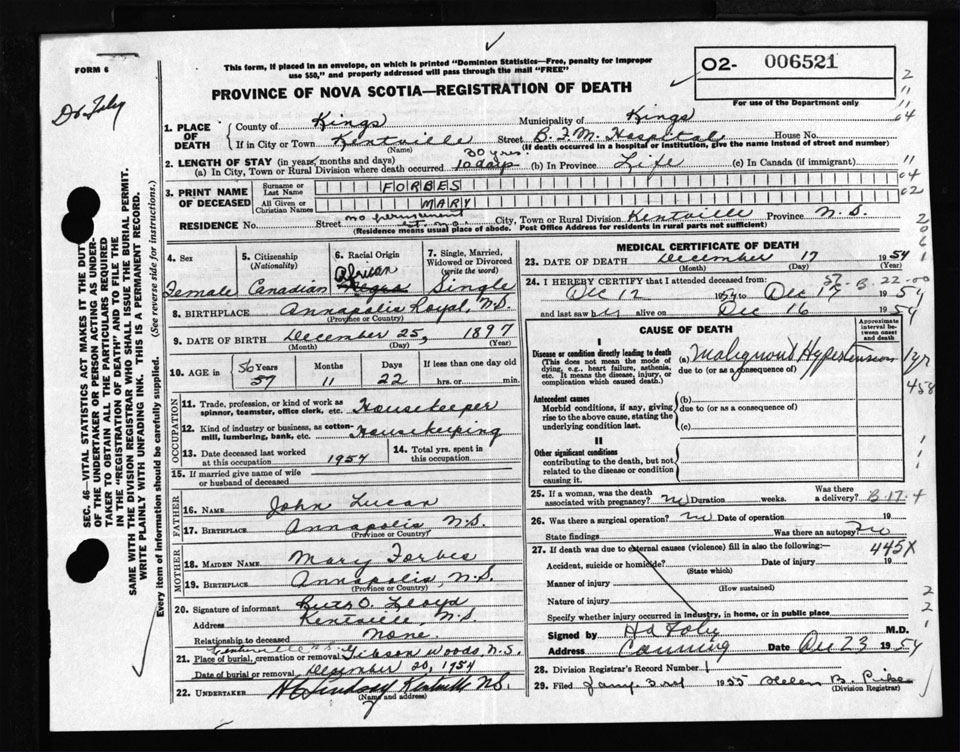 FORM 6
This form, if placed in an envelope, on which is printed "Dominion Statistics—Free, penalty for improper
use $50," and properly addressed will pass through the mail "FREE"
O2- 006521
For use of the Department only
PROVINCE OF NOVA SCOTIA—REGISTRATION OF DEATH
1. PLACE OF DEATH
County of Kings Municipality of Kings
If in City or Town Kentville Street B.F.M. Hospital House No.
(Name) (If death occurred in a hospital or institution, give the name instead of street and number)
2. LENGTH OF STAY (in years, months and days)
(a) In City, Town or Rural Division where death occurred 30 yrs. 10 days (b) In Province Life (c) In Canada (if immigrant)
3. PRINT NAME OF DECEASED
Surname or Last Name FORBES
All Given or Christian Names MARY
RESIDENCE No. Street no permanent City, Town or Rural Division Kentville Province N.S.
(Residence means usual place of abode. Post Office Address for residents in rural parts not sufficient)
4. Sex Female
5. Citizenship (Nationality) Canadian
6. Racial Origin African Negro
7. Single, Married, Widowed or Divorced (write the word) Single
8. BIRTHPLACE Annapolis Royal, N.S.
(Province or Country)
9. DATE OF BIRTH December 25, 1897
(Month) (Day) (Year)
10. AGE in 56 Years 57 Months 11 Days 22 If less than one day old hrs. or min.
OCCUPATION
11. Trade, profession, or kind of work as spinner, teamster, office clerk, etc. Housekeeper
12. Kind of industry or business, as cotton-mill, lumbering, bank, etc. Housekeeping
13. Date deceased last worked at this occupation 1954
14. Total yrs. spent in this occupation
15. If married give name of wife or husband of deceased
FATHER
16. NAME John Lucas
17. BIRTHPLACE Annapolis, N.S.
(Province or Country)
MOTHER
18. MAIDEN NAME Mary Forbes
19. BIRTHPLACE Annapolis, N.S.
(Province or Country)
20. Signature of informant Ruth O. Lloyd
Address Kentville, N.S.
Relationship to deceased None.
21. Place of burial, cremation or removal Gibson Woods N.S.
Date of burial or removal December 20, 1954
22. UNDERTAKER Lindsay Kentville N.S.
(Name and address)
MEDICAL CERTIFICATE OF DEATH
23. DATE OF DEATH December 17 1954
(Month) (Day) (Year)
24. I HEREBY CERTIFY that I attended deceased from:
Dec 12 1954 to Dec 17 1954
and last saw her alive on Dec 16 1954
CAUSE OF DEATH
Approximate interval between onset and death
I
Disease or condition directly leading to death
(This does not mean the mode of dying, e.g., heart failure, asthenia, etc. It means the disease, injury, or complication which caused death.)
(a) Malignant Hypertension 1 yr
due to (or as a consequence of)
Antecedent causes
Morbid conditions, if any, giving rise to the above cause, stating the underlying condition last.
(b)
due to (or as a consequence of)
(c)
II
Other significant conditions
contributing to the death, but not related to the disease or condition causing it.
25. If a woman, was the death associated with pregnancy? no Duration weeks. Was there a delivery? B-17-4
26. Was there a surgical operation? no Date of operation 19
State findings Was there an autopsy? no
27. If death was due to external causes (violence) fill in also the following:— 445X
Accident, suicide or homicide? Date of injury 19
(State which)
Manner of injury
(How sustained)
Nature of injury
Specify whether injury occurred in industry, in home, or in public place
Signed by M.D.
Address Canning Date Dec 23 1954
28. Division Registrar's Record Number 1
29. Filed Jany. 3rd 1955 Helen B. Pike
(Division Registrar)
SEC. 46—VITAL STATISTICS ACT MAKES IT THE DUTY
OF THE UNDERTAKER OR PERSON ACTING AS UNDER-
TAKER TO OBTAIN ALL THE PARTICULARS REQUIRED
IN THE "REGISTRATION OF DEATH" AND TO FILE THE
SAME WITH THE DIVISION REGISTRAR WHO SHALL ISSUE THE BURIAL PERMIT.
WRITE PLAINLY WITH UNFADING INK. THIS IS A PERMANENT RECORD.
Every item of information should be carefully supplied. (See reverse side for instructions.)